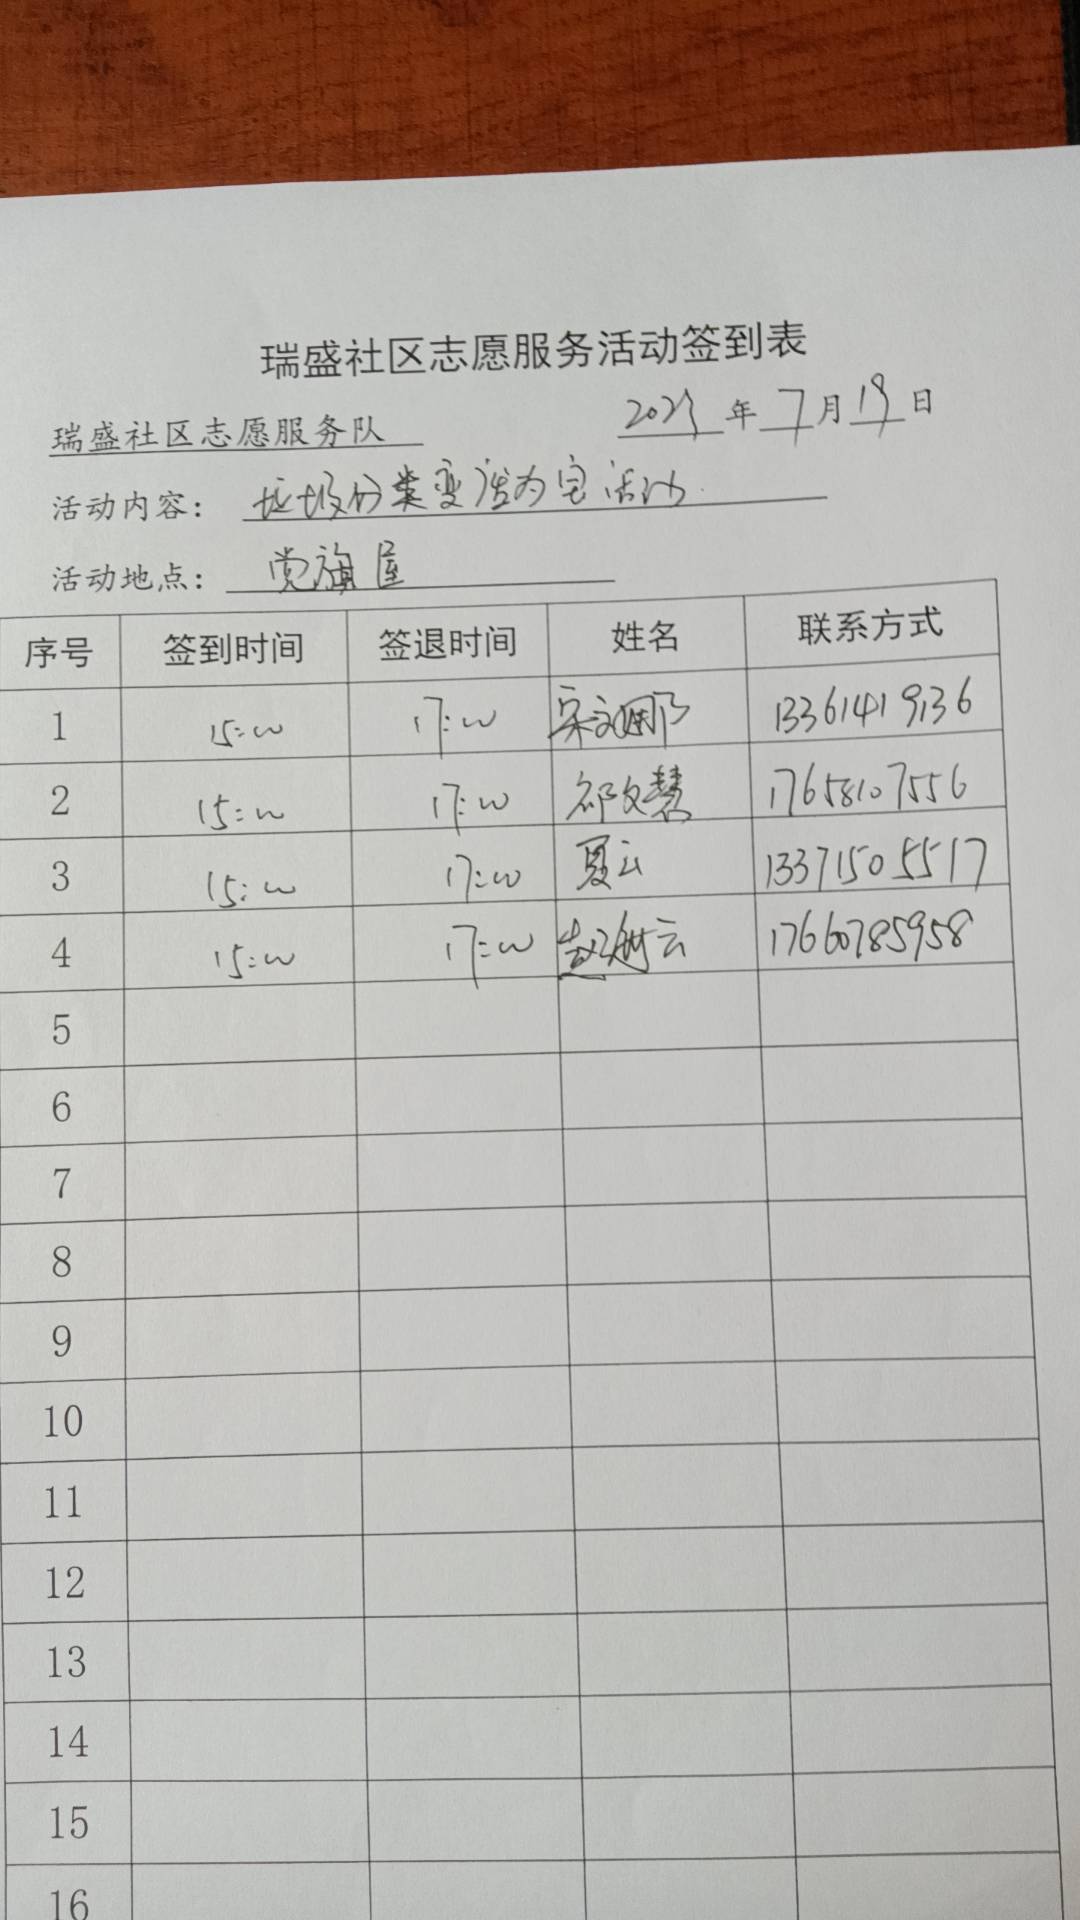 瑞盛社区志愿服务活动签到表
瑞盛社区志愿服务队 2023年7月19日
活动内容：垃圾分类变渣为宝活动
活动地点：党旗屋
序号 签到时间 签退时间 姓名 联系方式
1 15:00 17:00 宋文娜 13361419136
2 15:00 17:00 祁文慧 17658107556
3 15:00 17:00 夏云 13371505517
4 15:00 17:00 赵 云 17660785958
5
6
7
8
9
10
11
12
13
14
15
16